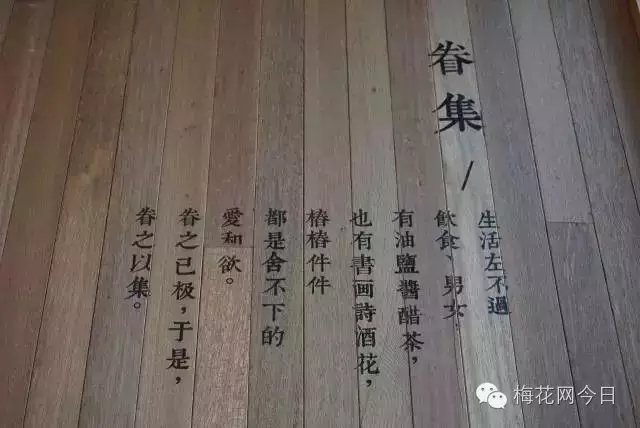 眷集/
生活左不過
飲食、男女,
有油鹽醬醋茶，
也有書画詩酒花，
樁樁件件
都是舍不下的
愛和欲。
眷之已极，于是，
眷之以集。
梅花网今日